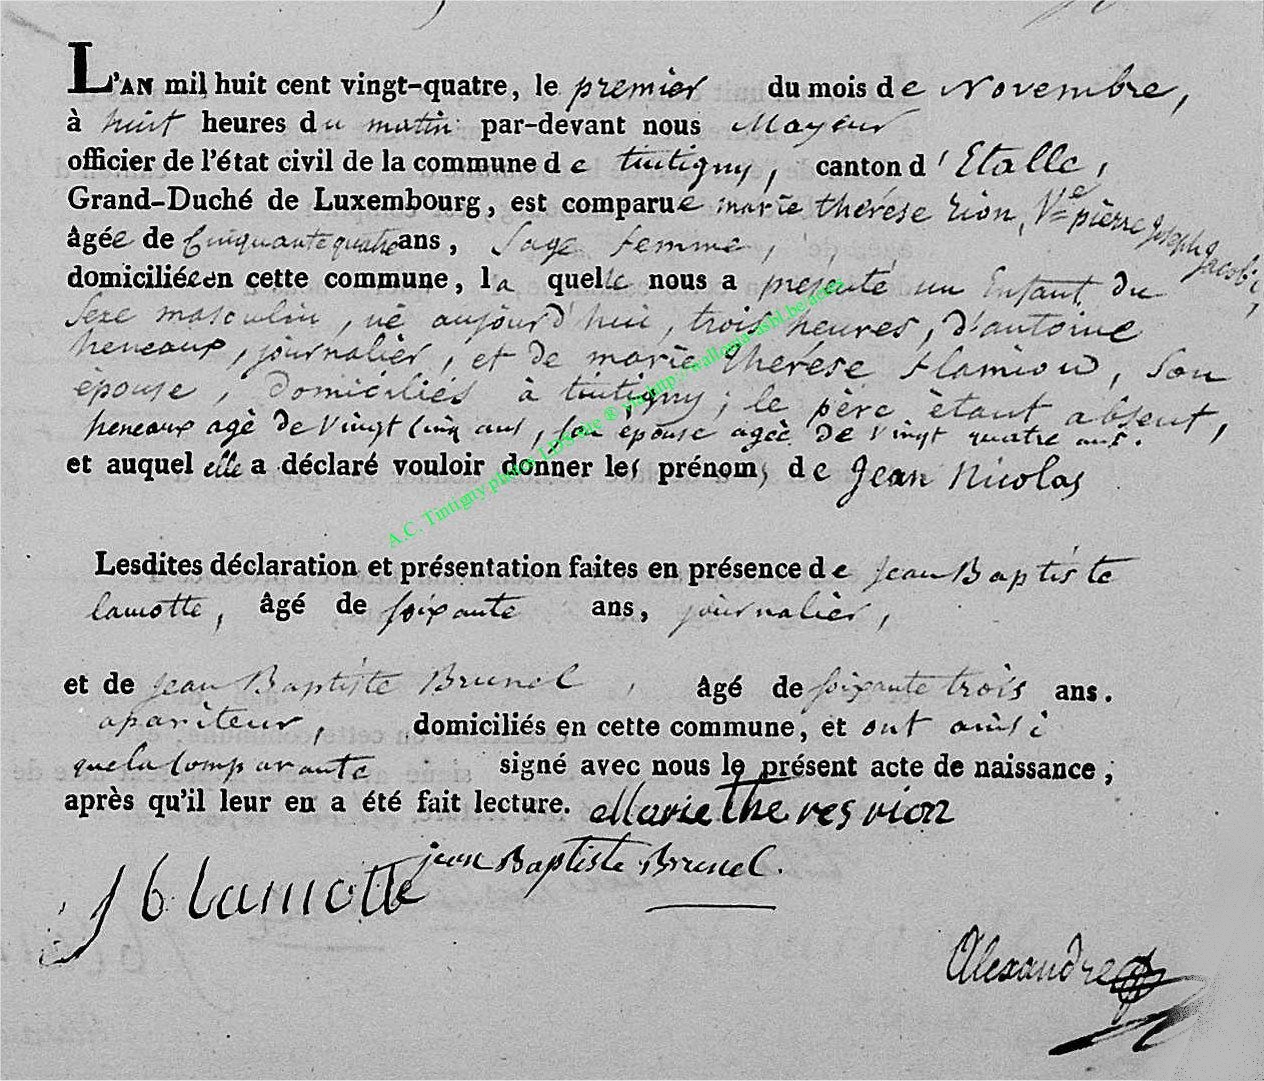 L'AN mil huit cent vingt-quatre, le premier du mois de Novembre,
à huit heures du matin par-devant nous Mayeur
officier de l'état civil de la commune de tintigny, canton d'Etalle,
Grand-Duché de Luxembourg, est comparue marie thérése rion, Ve pièrre joseph jacobi,
âgée de Cinquante quatre ans, Sage femme,
domiciliée en cette commune, la quelle nous a presenté un Enfant du
Sexe masculin, né aujourd'hui, trois heures, d'antoine
heneaux, journalièr, et de marie thérèse flamion, Son
épouse, domiciliés à tintigny; le père étant absent,
heneaux agé de vingt cinq ans, son épouse agée de vingt quatre ans.
et auquel elle a déclaré vouloir donner les prénoms de Jean Nicolas
Lesdites déclaration et présentation faites en présence de jean Baptiste
lamotte, âgé de soixante ans, journalièr,
et de jean Baptiste Brunel, âgé de soixante trois ans.
apariteur, domiciliés en cette commune, et ont ainsi
que la Comparante signé avec nous le présent acte de naissance,
après qu'il leur en a été fait lecture. Marie Theres rion
jean Baptiste Brunel.
J b lamotte
Alexandre
A.C. Tintigny photos LDS mc ® via http://wallonia-asbl.be/acte2